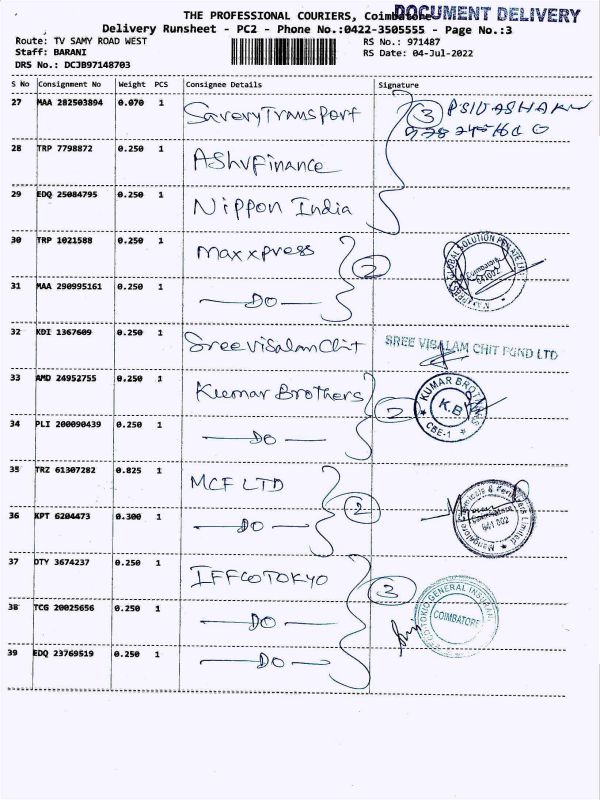 THE PROFESSIONAL COURIERS, Coimbatore
DOCUMENT DELIVERY
Delivery Runsheet - PC2 - Phone No.:0422-3505555 - Page No.:3
Route: TV SAMY ROAD WEST
RS No.: 971487
Staff: BARANI
RS Date: 04-Jul-2022
DRS No.: DCJB97148703
S No Consignment No Weight PCS Consignee Details Signature
27 MAA 282503894 0.070 1 Savery Transport 3
28 TRP 7798872 0.250 1 Ashv Finance
29 EDQ 25084795 0.250 1 Nippon India
30 TRP 1021588 0.250 1 Maxxpress 2
Coimbatore
641002
31 MAA 290995161 0.250 1 —DO—
32 KDI 1367609 0.250 1 Sree Visalam Chit SREE VISALAM CHIT FUND LTD
33 AMD 24952755 0.250 1 Kumar Brothers 2 KUMAR BROTHERS
K.B
CBE-1
34 PLI 200090439 0.250 1 —DO—
35 TRZ 61307282 0.825 1 MCF LTD 2
Mangalore Chemicals & Fertilizers Limited
Coimbatore
641 002
36 KPT 6204473 0.300 1 —DO—
37 DTY 3674237 0.250 1 IFFCOTOKYO 3
TOKIO GENERAL INSURAN
COIMBATORE
38 TCG 20025656 0.250 1 —DO—
39 EDQ 23769519 0.250 1 —DO—